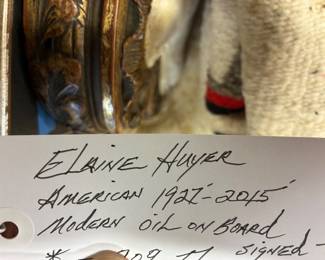 Elaine Huyer
American 1927-2015
Modern Oil on Board
signed -